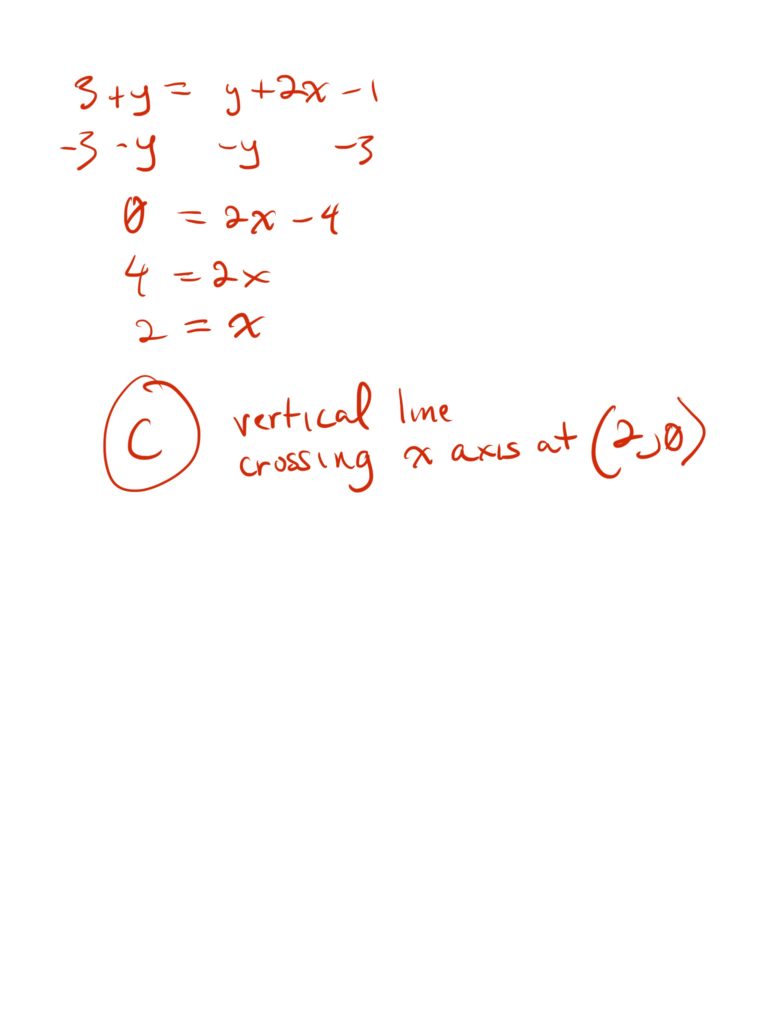 3+y = y+2x-1
-3 -y -y -3
0 = 2x-4
4 = 2x
2 = x
C vertical line
crossing x axis at (2,0)